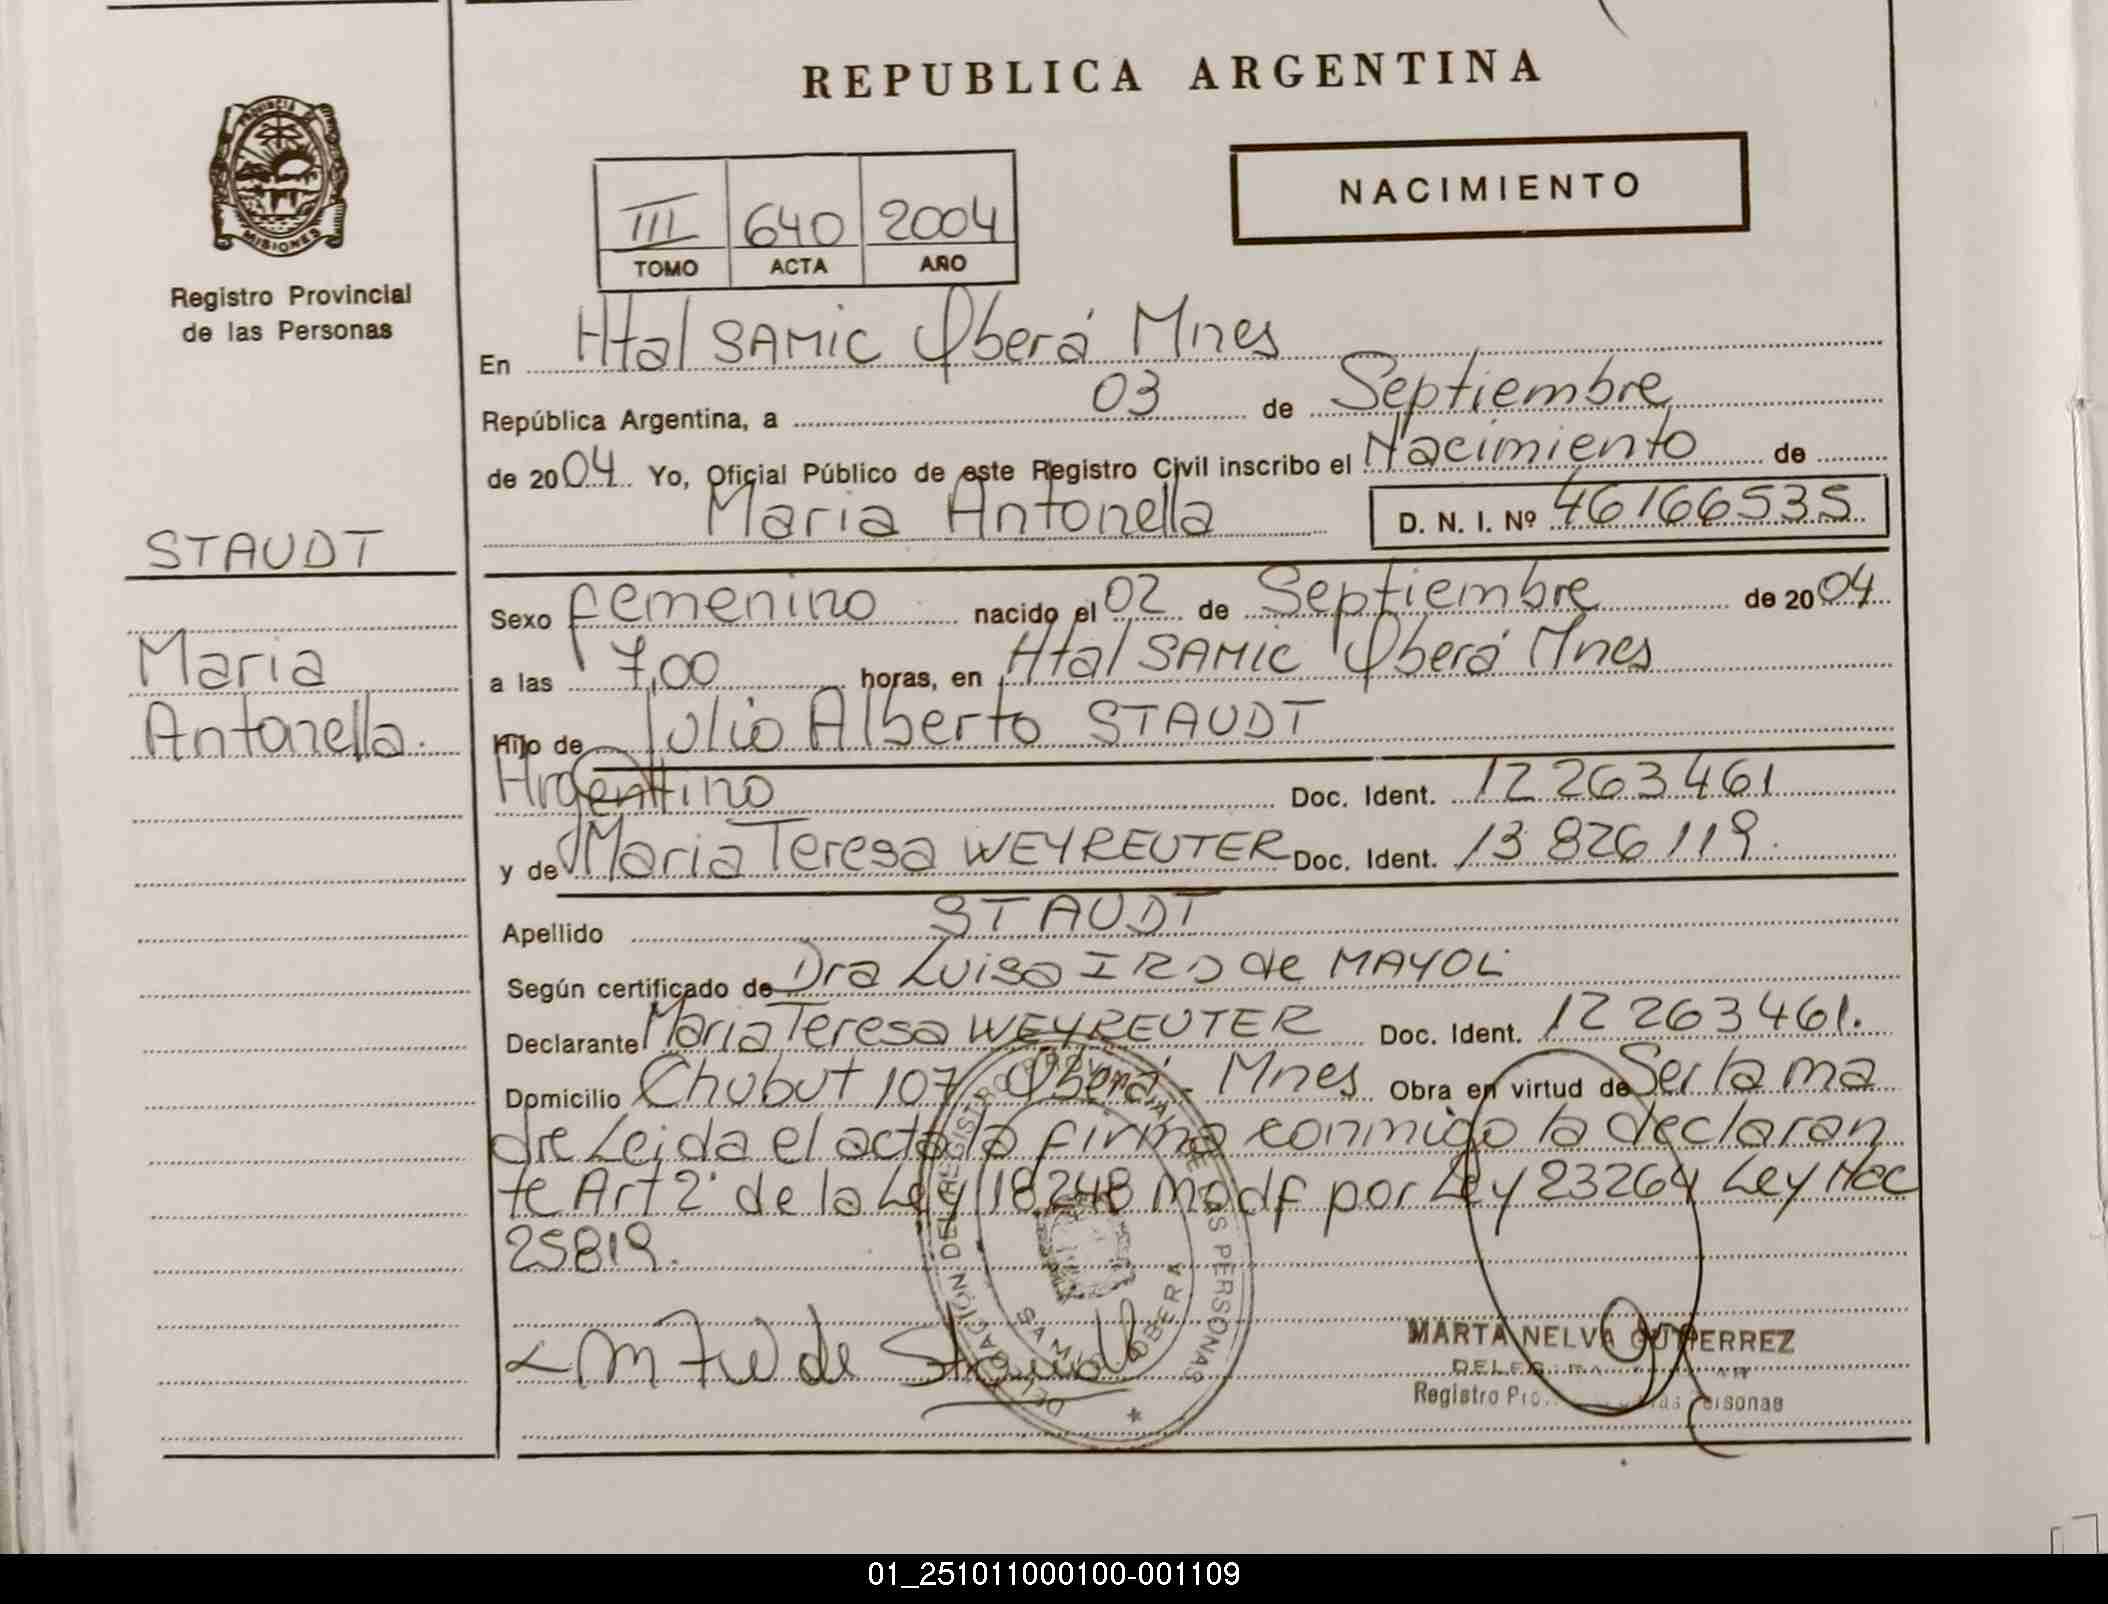 REPUBLICA ARGENTINA
PROVINCIA DE
MISIONES
Registro Provincial
de las Personas
NACIMIENTO
III 640 2004
TOMO ACTA AÑO
En Htal SAMIC Oberá Mnes
República Argentina, a 03 de Septiembre
de 2004 Yo, Oficial Público de este Registro Civil inscribo el Nacimiento de
Maria Antonella D. N. I. Nº 46166535
STAUDT
Maria
Antonella.
Sexo femenino nacido el 02 de Septiembre de 2004
a las 7,00 horas, en Htal SAMIC Oberá Mnes
Hijo de Julio Alberto STAUDT
Argentino Doc. Ident. 12 263 461
y de Maria Teresa WEYREUTER Doc. Ident. 13 826 119.
Apellido STAUDT
Según certificado de Dra Luisa de MAYOL
Declarante Maria Teresa WEYREUTER Doc. Ident. 12 263 461.
Domicilio Chubut 107 Oberá - Mnes Obra en virtud de Ser la ma
dre Leida el acta la firma conmigo la declaran
te Art 2º de la Ley 18248 Modf por Ley 23264 Ley Nac
25819.
de Staudt
DELEGACIÓN DEL REGISTRO PROVINCIAL DE LAS PERSONAS
SAMIC OBERA
MARTA NELVA GUTIERREZ
Registro Personas
01_251011000100-001109